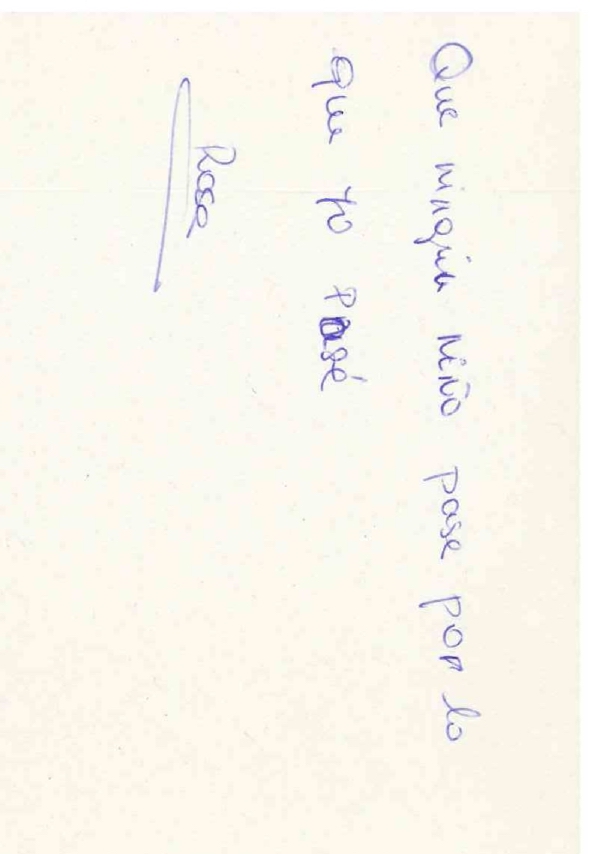 Que ningún niño pase por lo
que yo pasé
Rosa